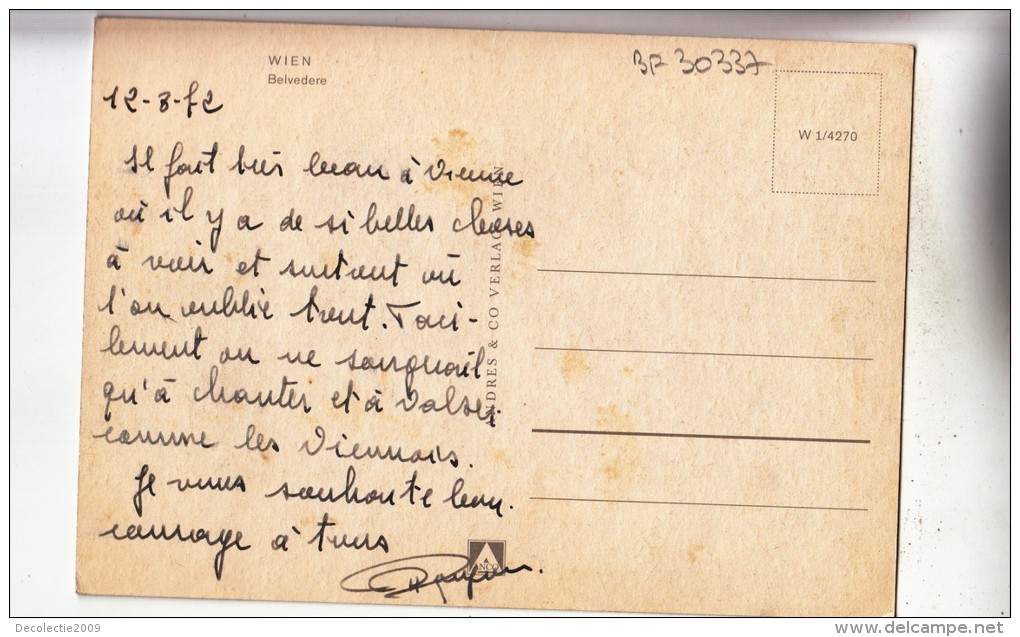 WIEN
Belvedere
BR 30337
W 1/4270
12-8-72
Il fait très beau à Vienne
où il y a de si belles choses
à voir et surtout où
l'on oublie tout. Faci-
lement on ne songerait
qu'à chanter et à valser
comme les Viennois.
Je vous souhaite bon
courage à tous
ANDRES & CO VERLAG WIEN
ANCO
Decolectie2009
www.delcampe.net